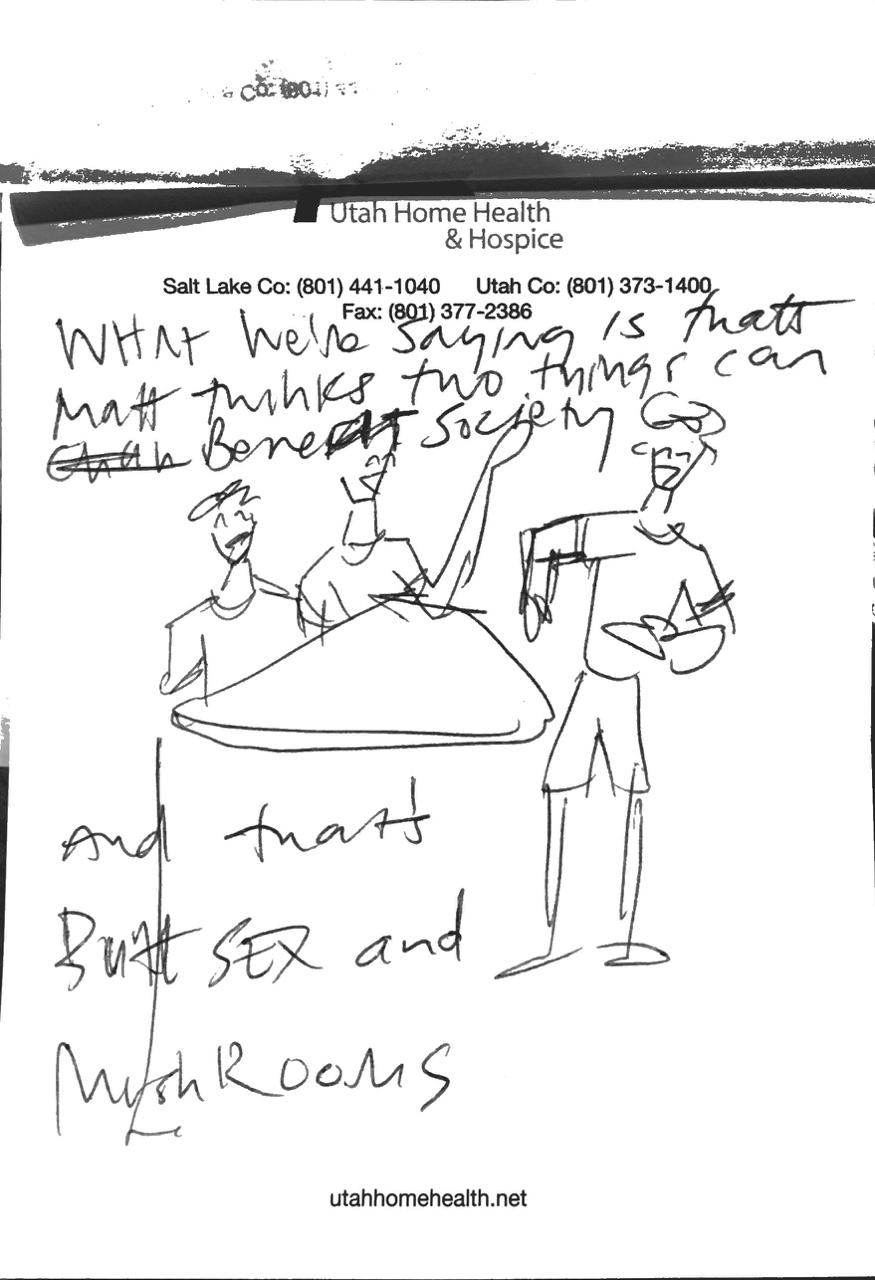 Co: (801)
Utah Home Health
& Hospice
Salt Lake Co: (801) 441-1040 Utah Co: (801) 373-1400
Fax: (801) 377-2386
WHAt We're saying is thats
Matt thinks two things can
Benefit Society
And that's
Butt SEX and
MushRooms
utahhomehealth.net